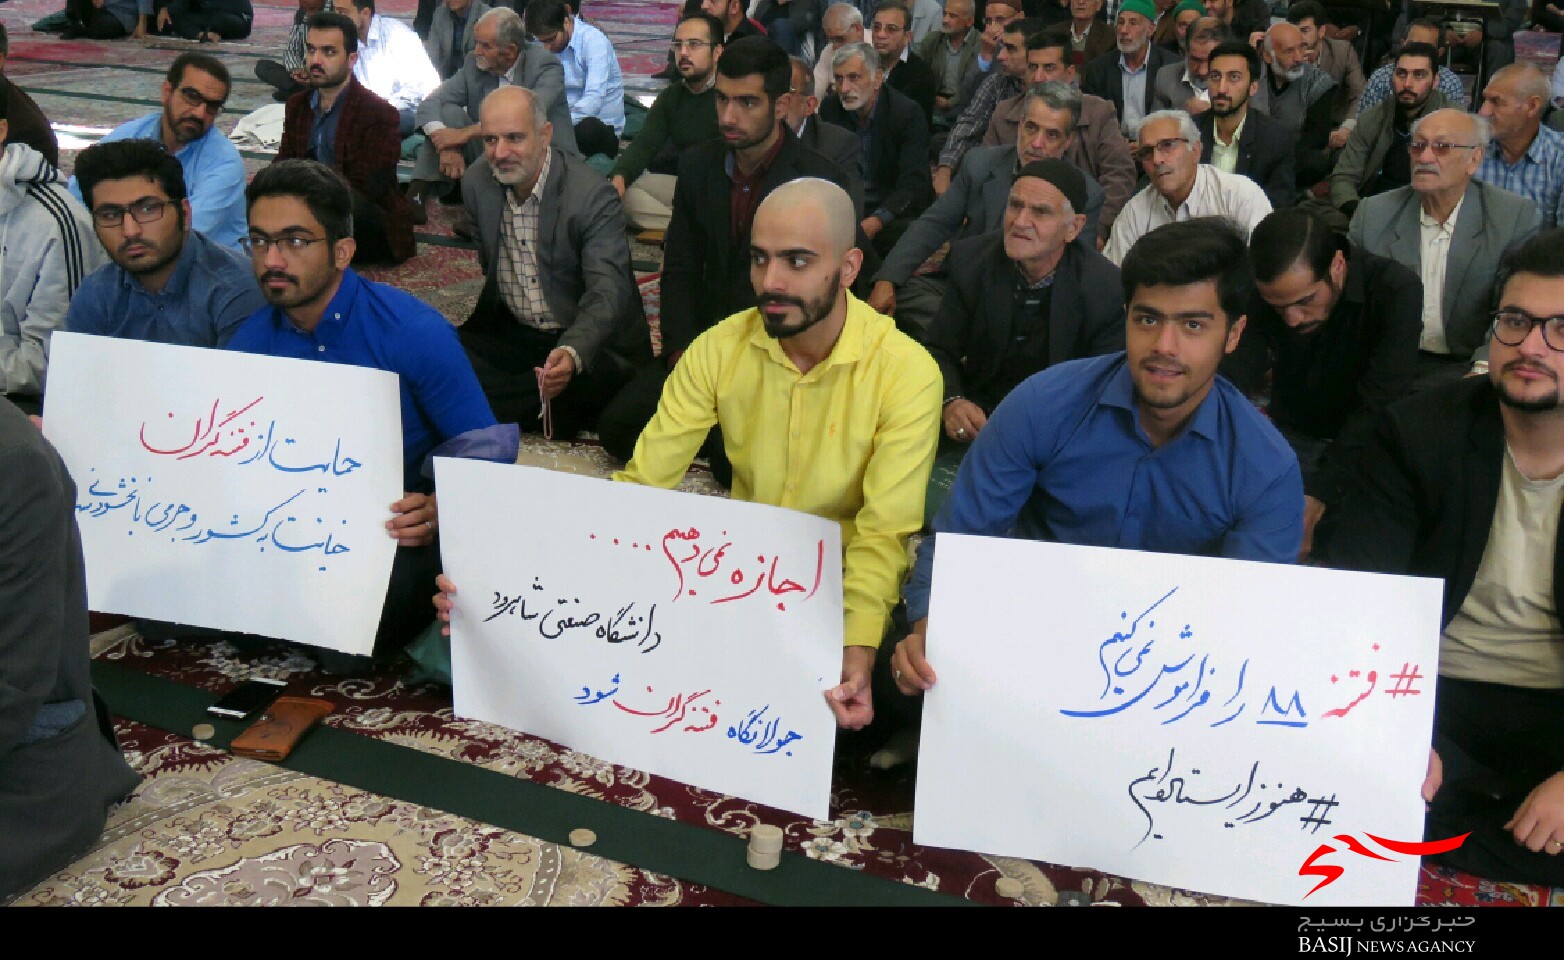 حمایت از فتنه گران
خیانت به کشور و جرمی نابخشودنی
اجازه نمی دهیم .....
دانشگاه صنعتی شاهرود
جولانگاه فتنه گران شود
#فتنه ۸۸ را فراموش نمی کنیم
#هنوز ایستاده ایم
بسیج
خبرگزاری بسیج
BASIJ NEWS AGANCY